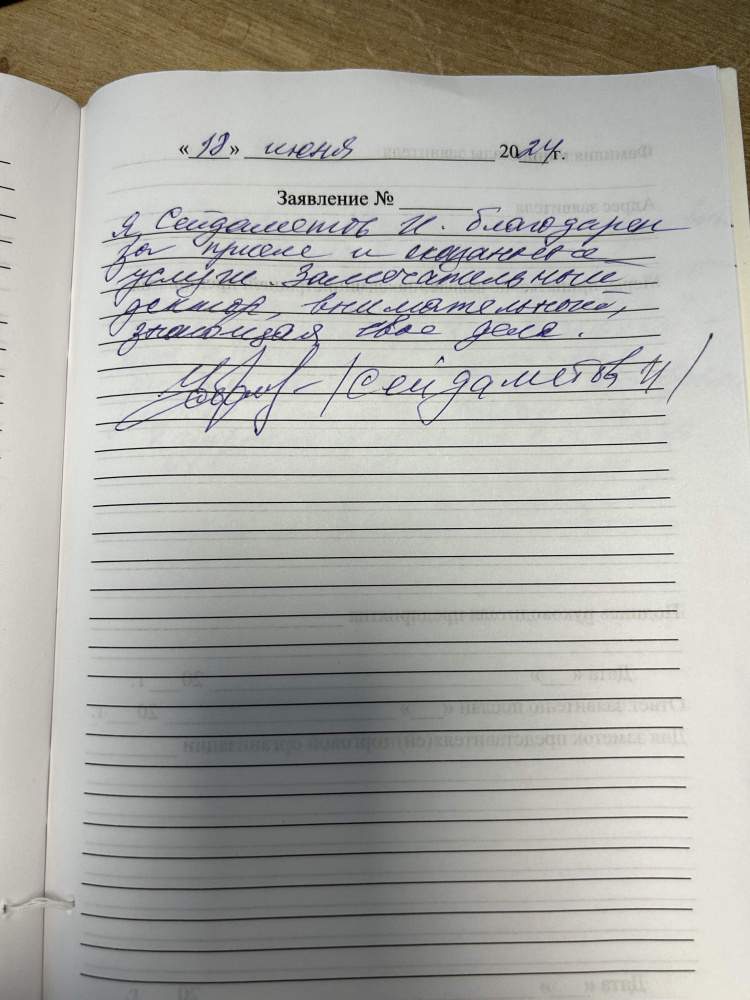 «18» июня 2024г.
Заявление №
Я Сейдаметов И. благодарен
за прием и оказанные
услуги. Замечательный
доктор, внимательный,
знающая свое дело.
/Сейдаметов И/